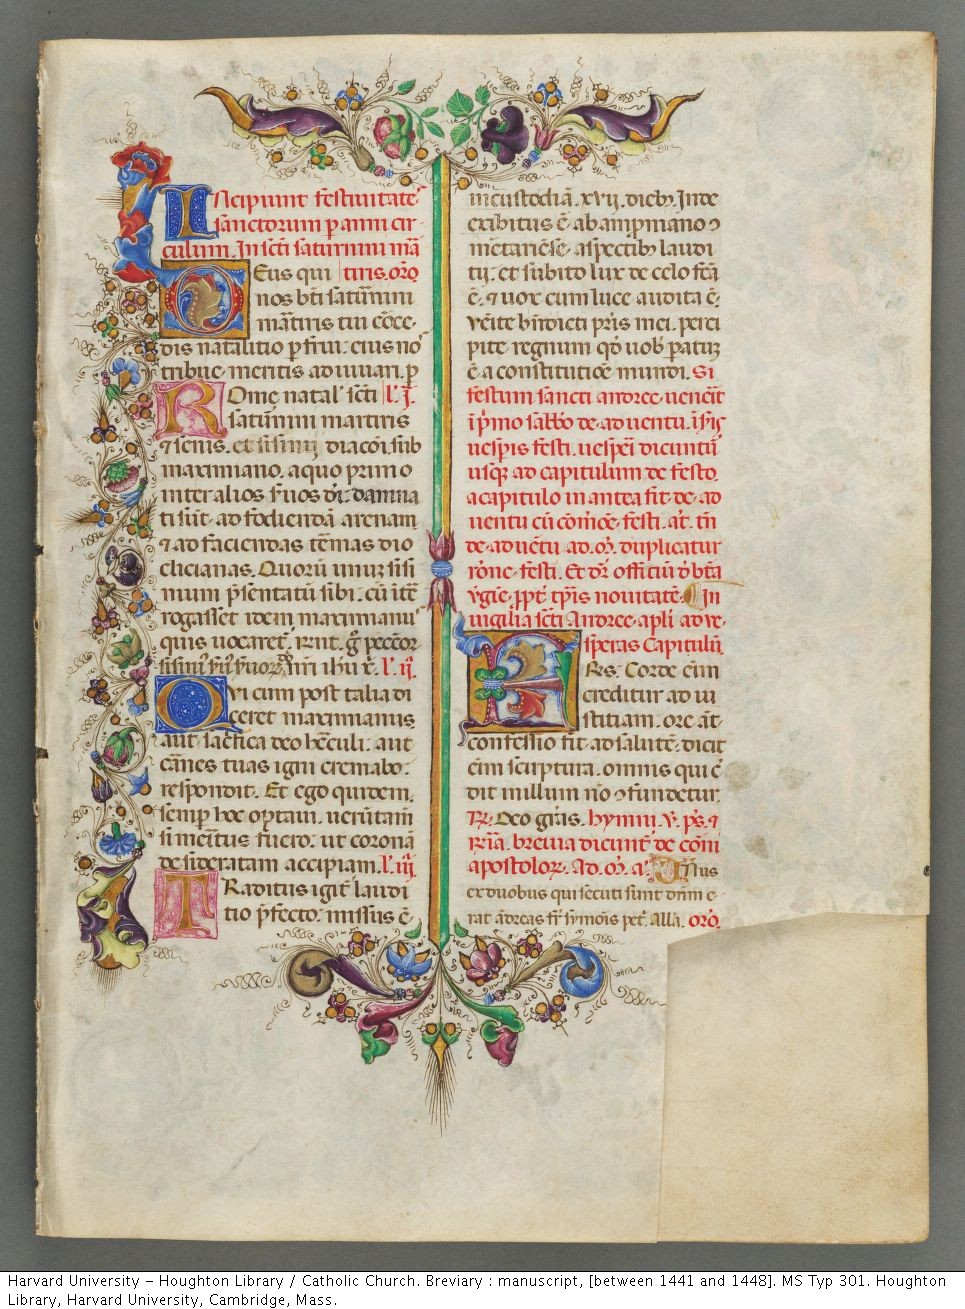 Incipiunt festiuitate᷒
sanctorum p anni cir-
culum. In scti saturnini mã
Deus qui tiris. orõ
nos bti saturnini
martiris tui cõce-
dis natalitio pfrui. eius no᷒
tribue meritis adiuuari. p
Rome natal᷒ scti l̓. j̃.
saturnini martiris
⁊ senis. et sisinij diacõi. sub
maximiano. a quo primo
inter alios suos dr̃. damna
ti sũt. ad fodiendã arenam
⁊ ad faciendas tẽmas dio
clicianas. Quorũ unus sisi
nium p̃sentatũ sibi. cũ itẽ
rogasset idem maximianus
quis uocaret᷒. Rñt. g̃ peccõr
sisini᷒ ihũ x̃. l̓. ij̃.
Qui cum post talia di
ceret maximianus
aut sacrifica deo hẽculi. aut
cãnes tuas igni cremabo.
respondit. Et ego quidem.
semp hoc optaui. uerũtam
si meritus fuero. ut coronã
desideratam accipiam. l̓. iij̃.
Traditus igit᷒ laudi
tio p̃fecto. missus ẽ
in custodiã. xvij. dieb᷒. Inde
exibitus ẽ ab ampniano ⁊
mẽtanẽse. aspectib᷒ laudi
tij. et subito lux de celo fcã
ẽ. ⁊ uox cum luce audita ẽ.
Vẽite bñdicti pr̃is mei. perci
pite regnum qd̃ uob᷒ paratũz
ẽ a constitutiõe mundi. Si
festum sancti andree uenẽit
i p̃mo sabb̃o de aduentu. i p̃is
uesp̃is festi. uesp̃ei dicunt᷒
usq᷒ ad capitulum de festo.
a capitulo in antea fit de ad
uentu cũ cõm̃oe festi. at̃. tñ
de aduẽtu ad. M̃. duplicatur
rõne festi. Et dr̃ officiũ d̃ b̃ta
v̓gie᷒. ppt̃ tp̃is nouitatẽ. In
uigilia scti Andree apli ad ve-
speras Capitulũ.
FRs. Corde eñi
creditur ad iu
stitiam. ore aũt
confessio fit ad salutẽ. dicit
eñi scriptura. omnis qui c᷒
dit in illum nõ ⁊fundetur.
R̃. Deo grãs. hymni. V̓. p̃s. ⁊
R̃ia. breuia dicunt᷒ de cõmi
apostolor̃. Ad. M̃. a᷒. Unus
ex duobus qui secuti sunt dñm e-
rat ãdreas fr̃ symõis pet᷒. Alla. orõ.
Harvard University – Houghton Library / Catholic Church. Breviary : manuscript, [between 1441 and 1448]. MS Typ 301. Houghton
Library, Harvard University, Cambridge, Mass.